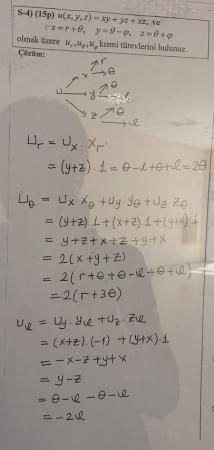 S-4) (15p) u(x, y, z) = xy + yz + xz, ve
x = r + θ, y = θ − φ, z = θ + φ
olmak üzere u_r, u_θ, u_φ kısmi türevlerini bulunuz.
Çözüm:
r
x θ
u y θ
φ
z θ
φ
U_r = U_x · X_r
= (y+z) · 1 = θ-φ+θ+φ = 2θ
U_θ = U_x X_θ + U_y · y_θ + U_z · z_θ
= (y+z) · 1 + (x+z) · 1 + (y+x) · 1
= y+z+x+z+y+x
= 2(x+y+z)
= 2(r+θ+θ-φ+θ+φ)
= 2(r+3θ)
u_φ = U_y · y_φ + U_z · z_φ
= (x+z) · (-1) + (y+x) · 1
= -x-z+y+x
= y-z
= θ-φ-θ-φ
= -2φ